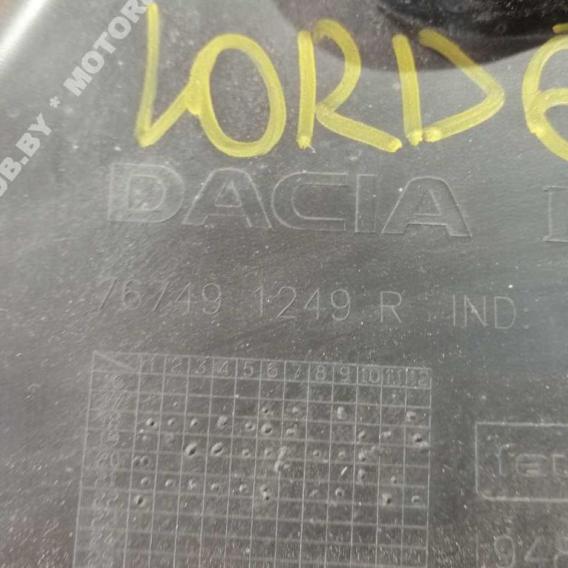 OB.BY * MOTOR
LORDE
DACIA
76749 1249 R IND
1 2 3 4 5 6 7 8 9 10 11 12
948